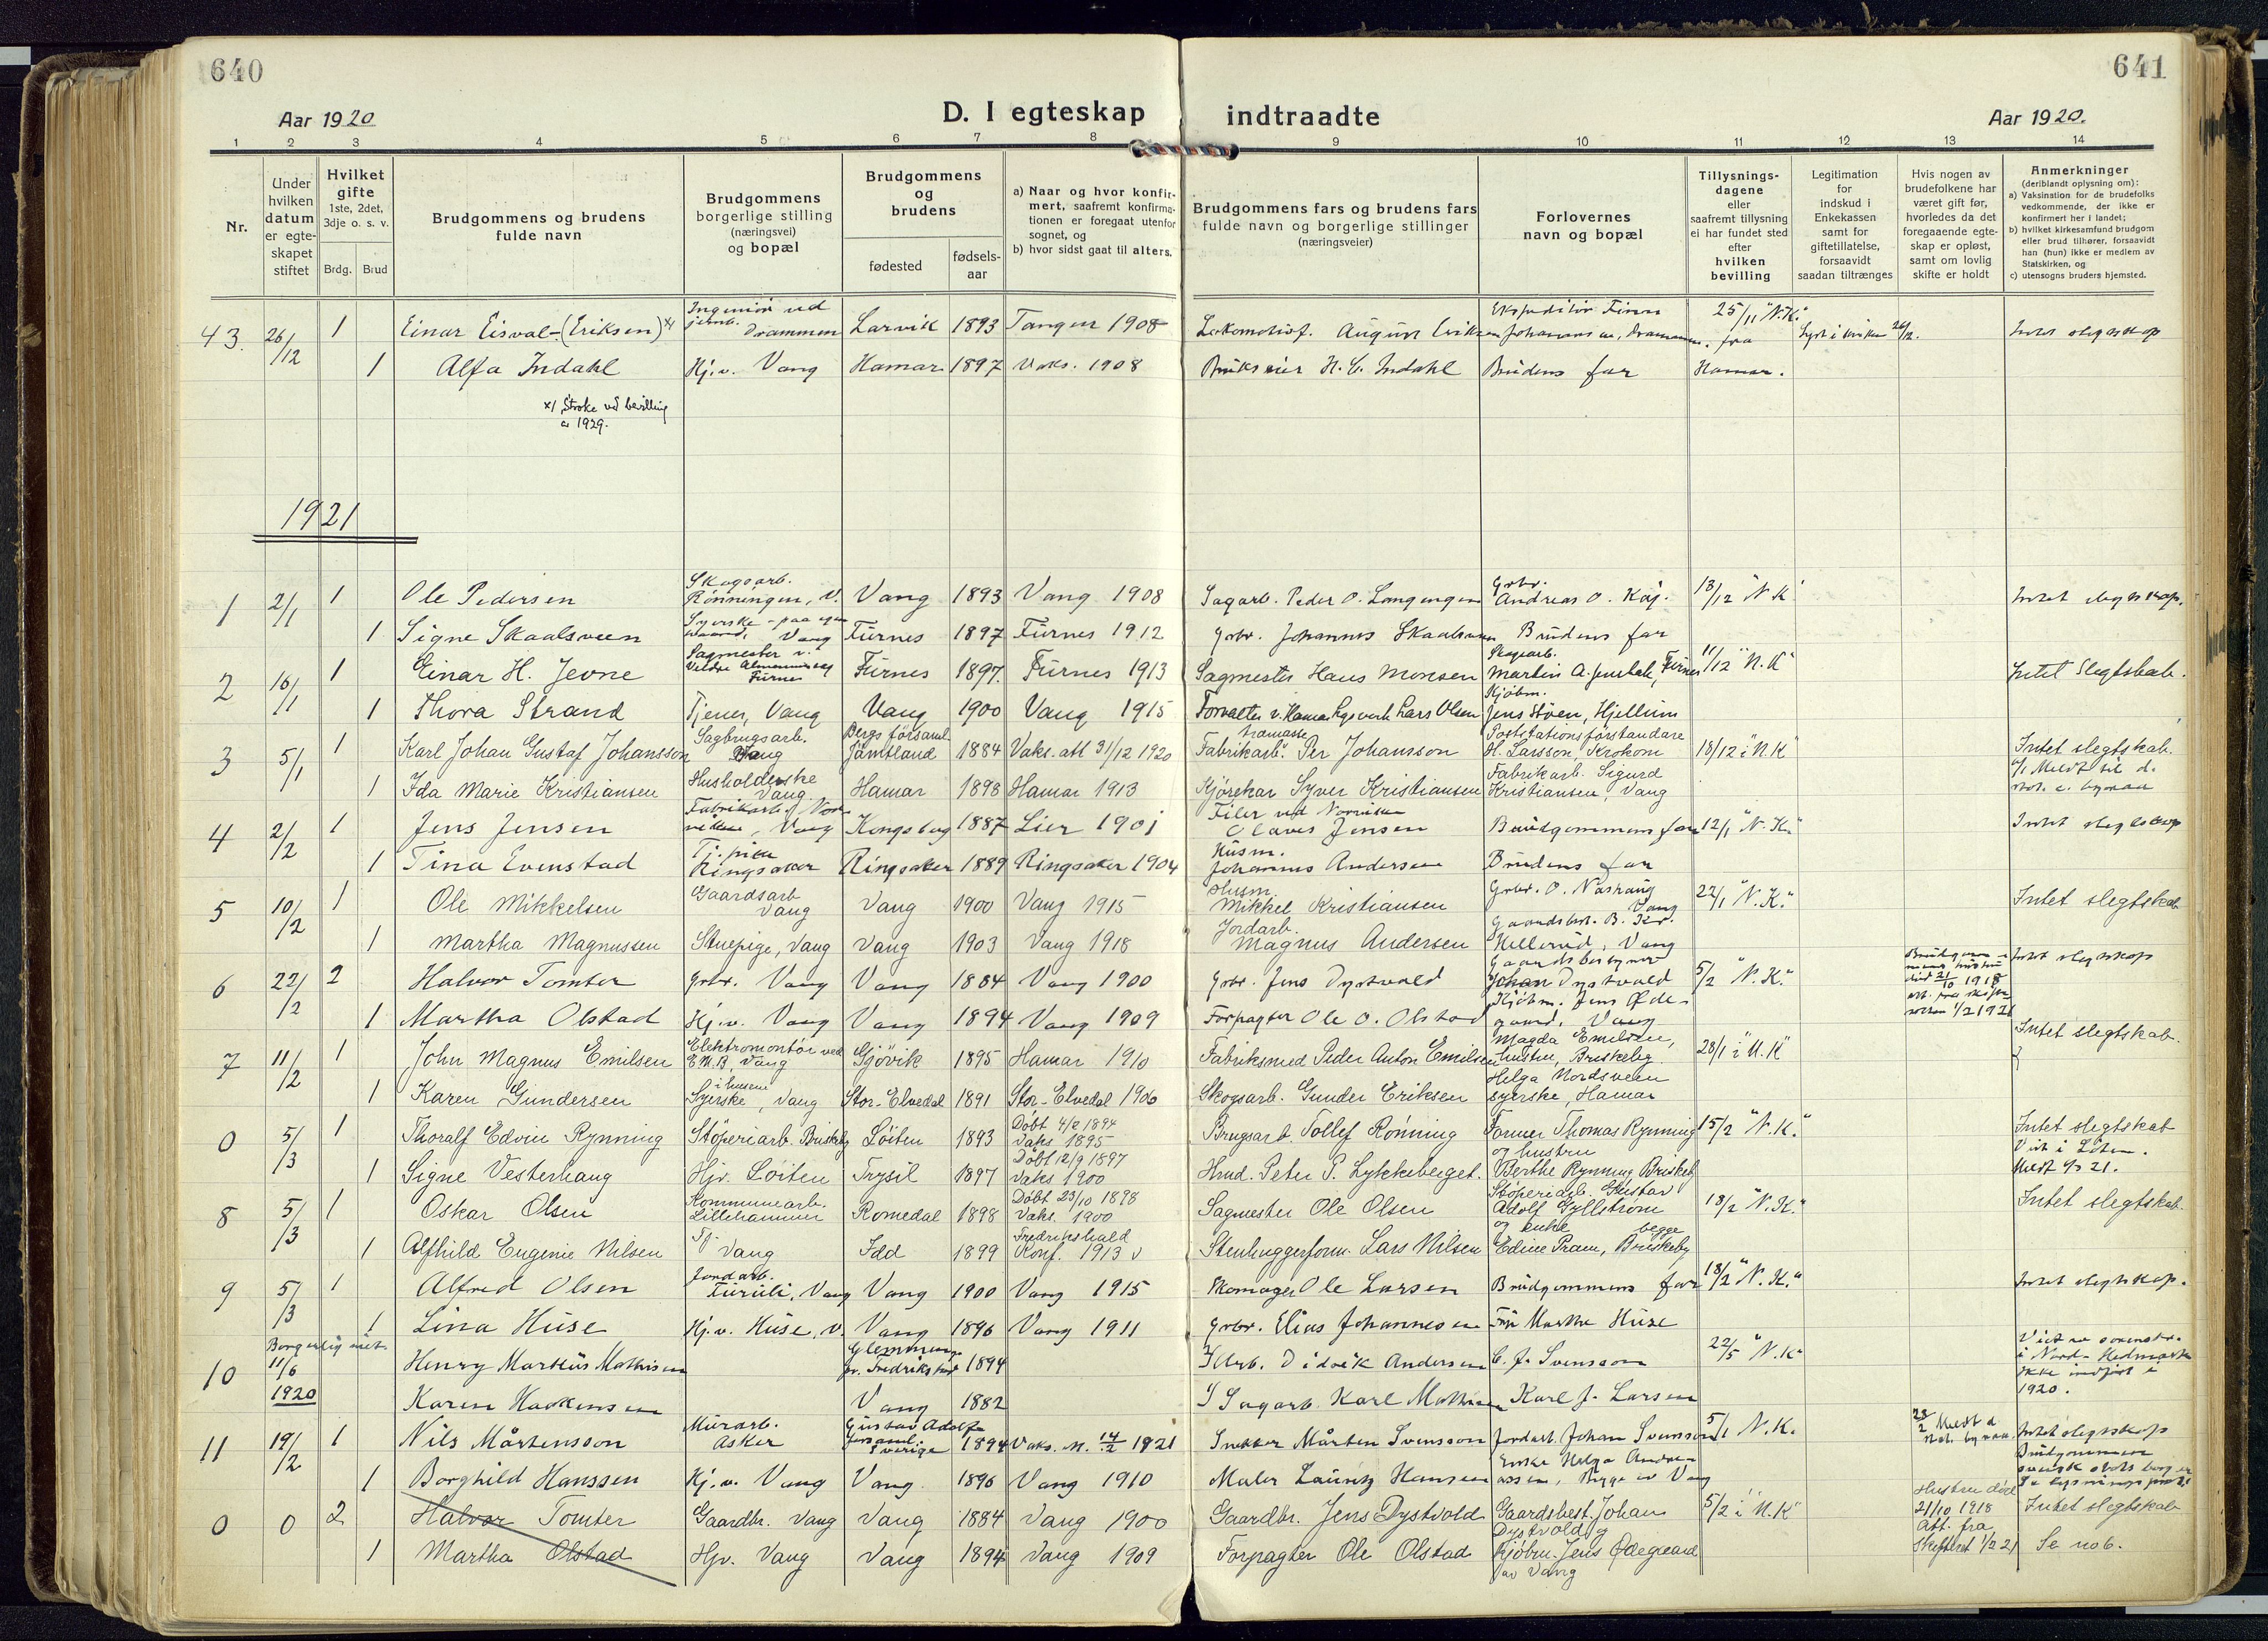 640
641
Aar 1920
D. I egteskap indtraadte
Aar 1920.
1 2 3 4 5 6 7 8 9 10 11 12 13 14
Nr.
Under hvilken datum er egte-skapet stiftet
Hvilket gifte
1ste, 2det, 3dje o. s. v.
Brdg. Brud
Brudgommens og brudens fulde navn
Brudgommens borgerlige stilling (næringsvei) og bopæl
Brudgommens og brudens
fødested
fødsels-aar
a) Naar og hvor konfir-mert, saafremt konfirma-tionen er foregaat utenfor sognet, og
b) hvor sidst gaat til alters.
Brudgommens fars og brudens fars fulde navn og borgerlige stillinger (næringsveier)
Forlovernes navn og bopæl
Tillysnings-dagene eller saafremt tillysning ei har fundet sted efter hvilken bevilling
Legitimation for indskud i Enkekassen samt for giftetillatelse, forsaavidt saadan tiltrænges
Hvis nogen av brudefolkene har været gift før, hvorledes da det foregaaende egte-skap er opløst, samt om lovlig skifte er holdt
Anmerkninger
(deriblandt oplysning om):
a) Vaksination for de brudefolks vedkommende, der ikke er konfirmert her i landet;
b) hvilket kirkesamfund brudgom eller brud tilhører, forsaavidt han (hun) ikke er medlem av Statskirken, og
c) utensogns bruders hjemsted.
43. 26/12 1 Einar Eisval-(Eriksen) x/ Ingeniør ved jernb. Drammen Larvik 1893 Tangen 1908 Lokomotivf. August Eriksen Ekspeditør Finn Johannesen, Drammen. 25/11 "N.K." fra Lyst i kirken 26/12. Intet slegtskap
1 Alfa Indahl Hj.v. Vang Hamar 1897 Vaks. 1908 Brukseier H. C. Indahl Brudens far Hamar.
x/ Stroke ved bevilling a 1929.
1921
1 2/1 1 Ole Pedersen Skogsarb. Rønningen, V. Vang 1893 Vang 1908 Sagarb. Peder O. Langengen Grbr. Andreas O. Kaj. 18/12 "N.K" Intet slegtskap.
1 Signe Skaalsveen Syerske - paa egen haand, Vang Furnes 1897 Furnes 1912 Grbr. Johannes Skaalsveen Brudens far
2 16/1 1 Einar H. Jevne Sagmester v. Veldre Almenning Furnes Furnes 1897. Furnes 1913 Sagmester Hans Monsen Skogarb. Martin A. Furnes 11/12 "N.K" Intet Slegtskab.
1 Thora Strand Tjener, Vang Vang 1900 Vang 1915 Forvalter v. Hamar Lars Olsen Kjøbm. Jens Støen, Hjellum
3 5/1 1 Karl Johan Gustaf Johansson Sagbrugsarb. Vang Bergs församl. Jämtland 1884 Vaks. att 31/12 1920 Fabrikarb. Per Johansson Poststationsförståndare H. Larsson, Krokom 18/12 i "N.K" Intet slegtskab.
1 Ida Marie Kristiansen Husholderske Vang Hamar 1898 Hamar 1913 Kjørekar Syver Kristiansen Fabrikarb. Sigurd Kristiansen, Vang
4 2/2 1 Jens Jensen Fabrikarb. Vang Kongsberg 1887 Lier 1901 Filer ved Norviken Olaves Jensen Brudgommens far 12/1 "N.K." Intet slegtskap
1 Tina Evenstad Tj.pike Ringsaker Ringsaker 1889 Ringsaker 1904 Husm. Johannes Andersen Brudens far
5 10/2 1 Ole Mikkelsen Gaardsarb Vang Vang 1900 Vang 1915 Husm. Mikkel Kristiansen Grbr. O. Nashaug Vang 22/1 "N.K." Intet slegtskab
1 Martha Magnussen Stuepige, Vang Vang 1903 Vang 1918 Jordarb. Magnus Andersen Gaardsbest. B. Kr. Hellerud, Vang
6 22/2 2 Halvor Tomter Grbr. Vang Vang 1884 Vang 1900 Grbr. Jens Dystvold Gaardsbestyrer Johan Dystvold 5/2 "N.K." Brudgommens hustru död 21/10 1918 att. fra skifteretten 1/2 1921 Intet slegtskap
1 Martha Olstad Hj.v. Vang Vang 1894 Vang 1909 Forpagter Ole O. Olstad Kjöbm. Jens Ødegaard, Vang
7 11/2 1 John Magnus Emilsen Elektromontör ved E.N.B, Vang Gjövik 1895 Hamar 1910 Fabriksmed Peder Anton Emilsen Magda Emilsen, hustru, Briskeby 28/1 i "N.K" Intet slegtskab.
1 Karen Gundersen Syerske i husene, Vang Stor-Elvedal 1891 Stor-Elvedal 1906 Skogsarb. Gunder Eriksen Helga Nordsveen syerske, Hamar
0 5/3 1 Thoralf Edvin Rynning Støperiarb. Briskeby Löiten 1893 Döbt 4/2 1894 Vaks 1895 Brugsarb. Tollef Rönning Former Thomas Rynning og hustru 15/2 "N.K." Intet slegtskab Viet i Löten. Meldt 9/3 21.
1 Signe Vesterhaug Hjv. Löiten Trysil 1897 Döbt 12/9 1897 Vaks 1900 Hmd. Peter P. Lykkeberget. Berthe Rynning Briskeby
8 5/3 1 Oskar Olsen Kommunearb. Lillehammer Romedal 1898 Döbt 23/10 1898 Vaks. 1900 Sagmester Ole Olsen Støperiarb. Gustav Adolf Gyllström 18/2 "N.K." Intet slegtskab.
1 Alfhild Eugenie Nilsen Tj. Vang Idd 1899 Fredrikshald Konf. 1913 Stenhuggerform. Lars Nilsen og enke Edine Pram, begge Briskeby
9 5/3 1 Alfred Olsen Jordarb. Furuli, Vang Vang 1900 Vang 1915 Skomager Ole Larsen Brudgommens far 18/2 "N.K." Intet slegtskap.
1 Lina Huse Hj.v. Huse, V. Vang 1896 Vang 1911 Grbr. Elias Johannesen Fru Marthe Huse
Borgerlig viet.
10 11/6 1920 Henry Martius Mathisen Glemminge pr. Fredrikstad 1894 Didrik Andersen C. J. Svensson 22/5 "N.K" Viet av sorenskr. i Nord-Hedmark Ikke indført i 1920.
Karen Haakensen Vang 1882 Sagarb. Karl Mathisen Karl J. Larsen
11 19/2 1 Nils Mårtensson Murarb. Asker Gustav Adolfs forsaml. Sverige 1894 Vaks. 14/2 1921 Snekker Mårten Svensson Jordarb. Johan Svensson 5/1 N.K. Intet slegtskap Brudgommen svensk statsborger
1 Borghild Hanssen Hj.v. Vang Vang 1896 Vang 1910 Maler Lauritz Hansen Enke Helga Andreassen, begge av Vang
0 0 2 Halvor Tomter Gaardbr. Vang Vang 1884 Vang 1900 Gaardbr. Jens Dystvold Gaardsbest. Johan Dystvold og 5/2 i "N.K" Hustru död 21/10 1918 Att. fra skifteret 1/2 21 Intet slegtskab
1 Martha Olstad Hjv. Vang Vang 1894 Vang 1909 Forpagter Ole Olstad Kjöbm. Jens Ødegaard av Vang Se no 6.